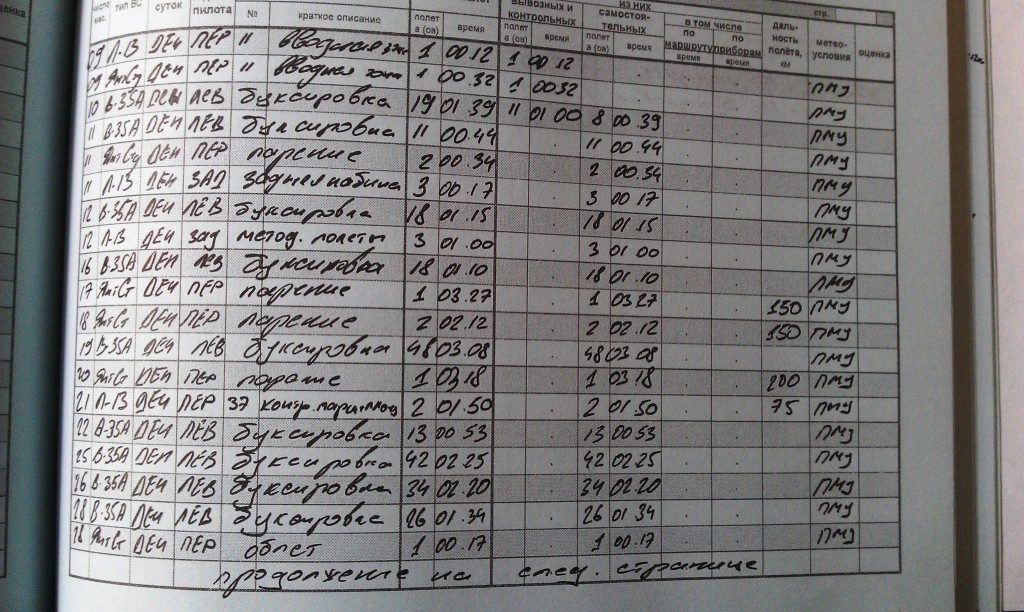 стр.
мес. тип ВС суток пилота № краткое описание полета (ов) время вывозных и контрольных полета (ов) время из них самостоятельных полета (ов) время в том числе по маршруту время по приборам время дальность полёта, км метеоусловия оценка
09 Л-13 ДЕН ПЕР " вводная зона 1 00.12 1 00 12
09 Янтg ДЕН ПЕР " вводная зона 1 00.32 1 0032 ПМУ
10 В-35А ДЕН ЛЕВ буксировка 19 01 39 11 01 00 8 00 39 ПМУ
11 В-35А ДЕН ЛЕВ буксировка 11 00.44 11 00.44 ПМУ
11 ДЕН ПЕР парение 2 00.34 2 00.34 ПМУ
11 Л-13 ДЕН ЗАД задняя кабина 3 00.17 3 00 17 ПМУ
12 В-35А ДЕН ЛЕВ буксировка 18 01.15 18 01.15 ПМУ
12 Л-13 ДЕН зад метод. полеты 3 01.00 3 01 00 ПМУ
16 В-35А ДЕН лев буксировка 18 01.10 18 01.10 ПМУ
17 ЯнтСт ДЕН ПЕР парение 1 03.27 1 0327 150 ПМУ
18 ЯнтСт ДЕН ПЕР парение 2 02.12 2 02.12 150 ПМУ
19 В-35А ДЕН ЛЕВ буксировка 48 03.08 48 03 08 ПМУ
20 ЯнтСт ДЕН ПЕР парение 1 03.18 1 03 18 200 ПМУ
21 Л-13 ДЕН ПЕР 37 контр. парителей 2 01.50 2 01.50 75 ПМУ
22 В-35А ДЕН ЛЕВ буксировка 13 00 53 13 0053 ПМУ
25 В-35А ДЕН ЛЕВ буксировка 42 02.25 42 02.25 ПМУ
26 В-35А ДЕН ЛЕВ буксировка 34 02.20 34 02.20 ПМУ
28 В-35А ДЕН ЛЕВ буксировка 26 01.34 26 01 34 ПМУ
28 ЯнтСт ДЕН ПЕР облет 1 00.17 1 00.17 ПМУ
продолжение на след. странице